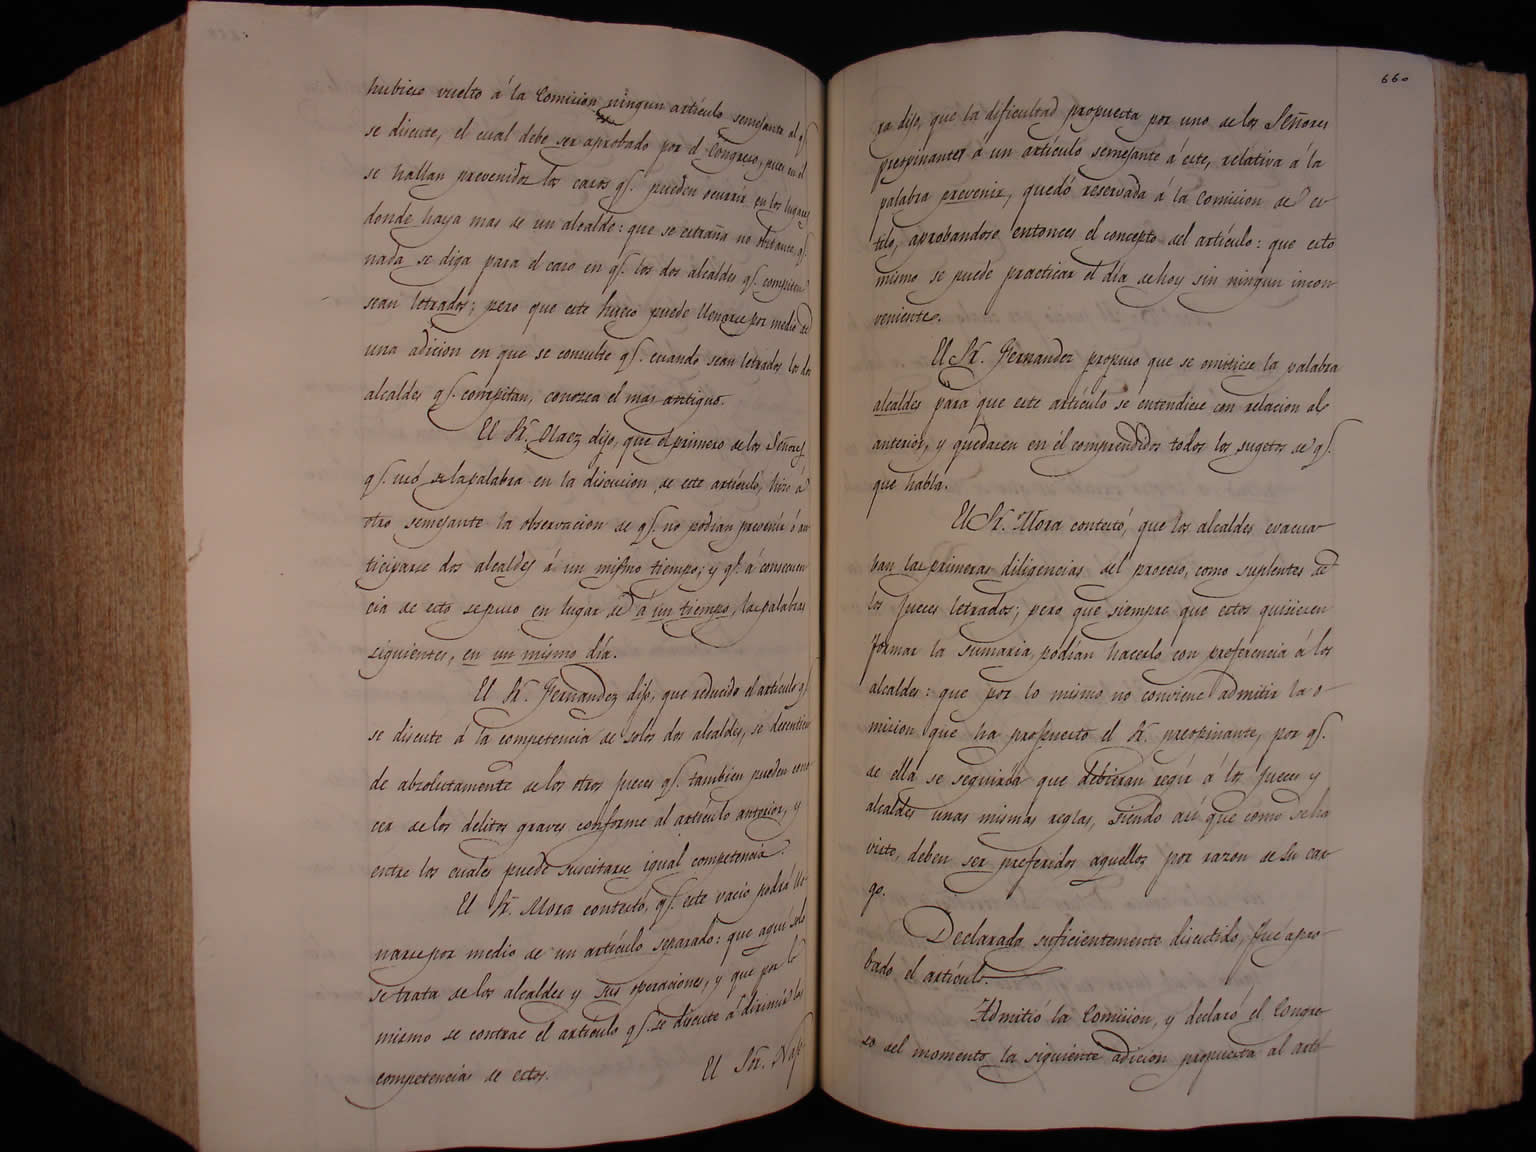 hubiese vuelto á la Comision ningun artículo semejante al q.
se discute, el cual debe ser aprobado por el Congreso, pues en el
se hallan prevenidos los casos q. pueden ocurrir en los lugares
donde haya mas de un alcalde: que se estraña no obstante, q.
nada se diga para el caso en q. los dos alcaldes q. compiten
sean letrados; pero que este hueco puede llenarse por medio de
una adicion en que se consulte q. cuando sean letrados los dos
alcaldes q. compitan, conozca el mas antiguo.
El Sr. Olaez dijo, que el primero de los Señores
q. usó de la palabra en la discusion de este artículo, hizo á
otro semejante la observacion de q. no podian prevenir ó an-
ticiparse dos alcaldes á un mismo tiempo; y q. á consecuen
cia de esto se puso en lugar de á un tiempo, las palabras
siguientes, en un mismo día.
El Sr. Fernandez dijo, que reducido el artículo q.
se discute á la competencia de solos dos alcaldes, se desentien
de absolutamente de los otros jueces q. tambien pueden cono
cer de los delitos graves conforme al artículo anterior, y
entre los cuales puede suscitarse igual competencia.
El Sr. Mora contestó, q. este vacío podrá lle-
narse por medio de un artículo separado: que aquí solo
se trata de los alcaldes y sus operaciones, y que por lo
mismo se contrae el artículo q. se discute á dirimir las
competencias de estos. El Sr. Náje
660
ra dijo, que la dificultad propuesta por uno de los Señores
preopinantes á un artículo semejante á este, relativa á la
palabra prevenir, quedó reservada á la Comision de es-
tilo, aprobandose entonces el concepto del artículo: que esto
mismo se puede practicar el día de hoy sin ningun incon
veniente.
El Sr. Fernandez propuso que se omitiese la palabra
alcaldes para que este artículo se entendiese con relacion al
anterior, y quedasen en él comprendidos todos los sugetos de q.
que habla.
El Sr. Mora contestó, que los alcaldes evacua-
ban las primeras diligencias del proceso, como suplentes de
los jueces letrados; pero que siempre que estos quisiesen
formar la sumaria, podian hacerlo con preferencia á los
alcaldes: que por lo mismo no conviene admitir la o-
mision que ha propuesto el Sr. preopinante, por q.
de ella se seguiría que debieran regir á los jueces y
alcaldes unas mismas reglas, siendo así que como se ha
visto, deben ser preferidos aquellos por razon de su car-
go.
Declarado suficientemente discutido, fué apro-
bado el artículo.
Admitió la Comision, y declaró el Congre-
so del momento la siguiente adicion propuesta al artí-